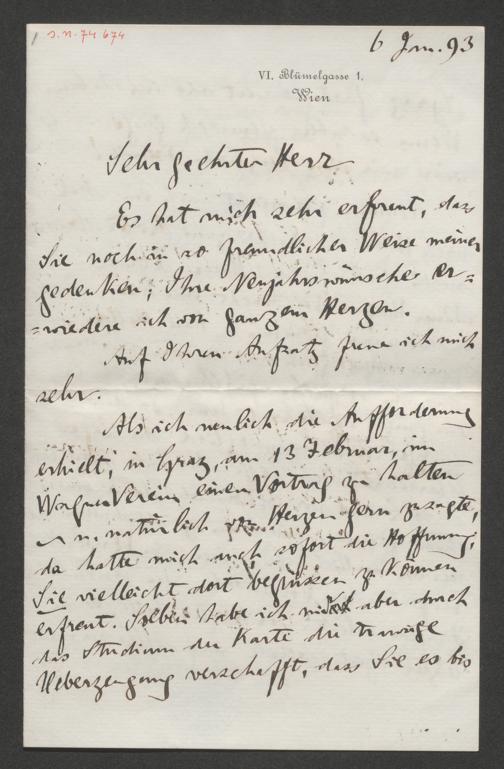 s.n. 74 674
6 Jan. 93
VI. Blümelgasse 1.
Wien
Sehr geehrter Herr
Es hat mich sehr erfreut, dass
Sie noch in so freundlicher Weise meiner
gedenken; Ihre Neujahrswünsche er=
=wiedere ich von ganzem Herzen.
Auf Ihren Aufsatz freue ich mich
sehr.
Als ich neulich die Aufforderung
erhielt, in Graz, am 13 Februar, im
Wagner Verein einen Vortrag zu halten
u natürlich von Herzen gern zusagte,
da hatte mich auch sofort die Hoffnung,
Sie vielleicht dort begrüssen zu können
erfreut. Soeben habe ich mir aber durch
das Studium der Karte die traurige
Ueberzeugung verschafft, dass Sie es bis